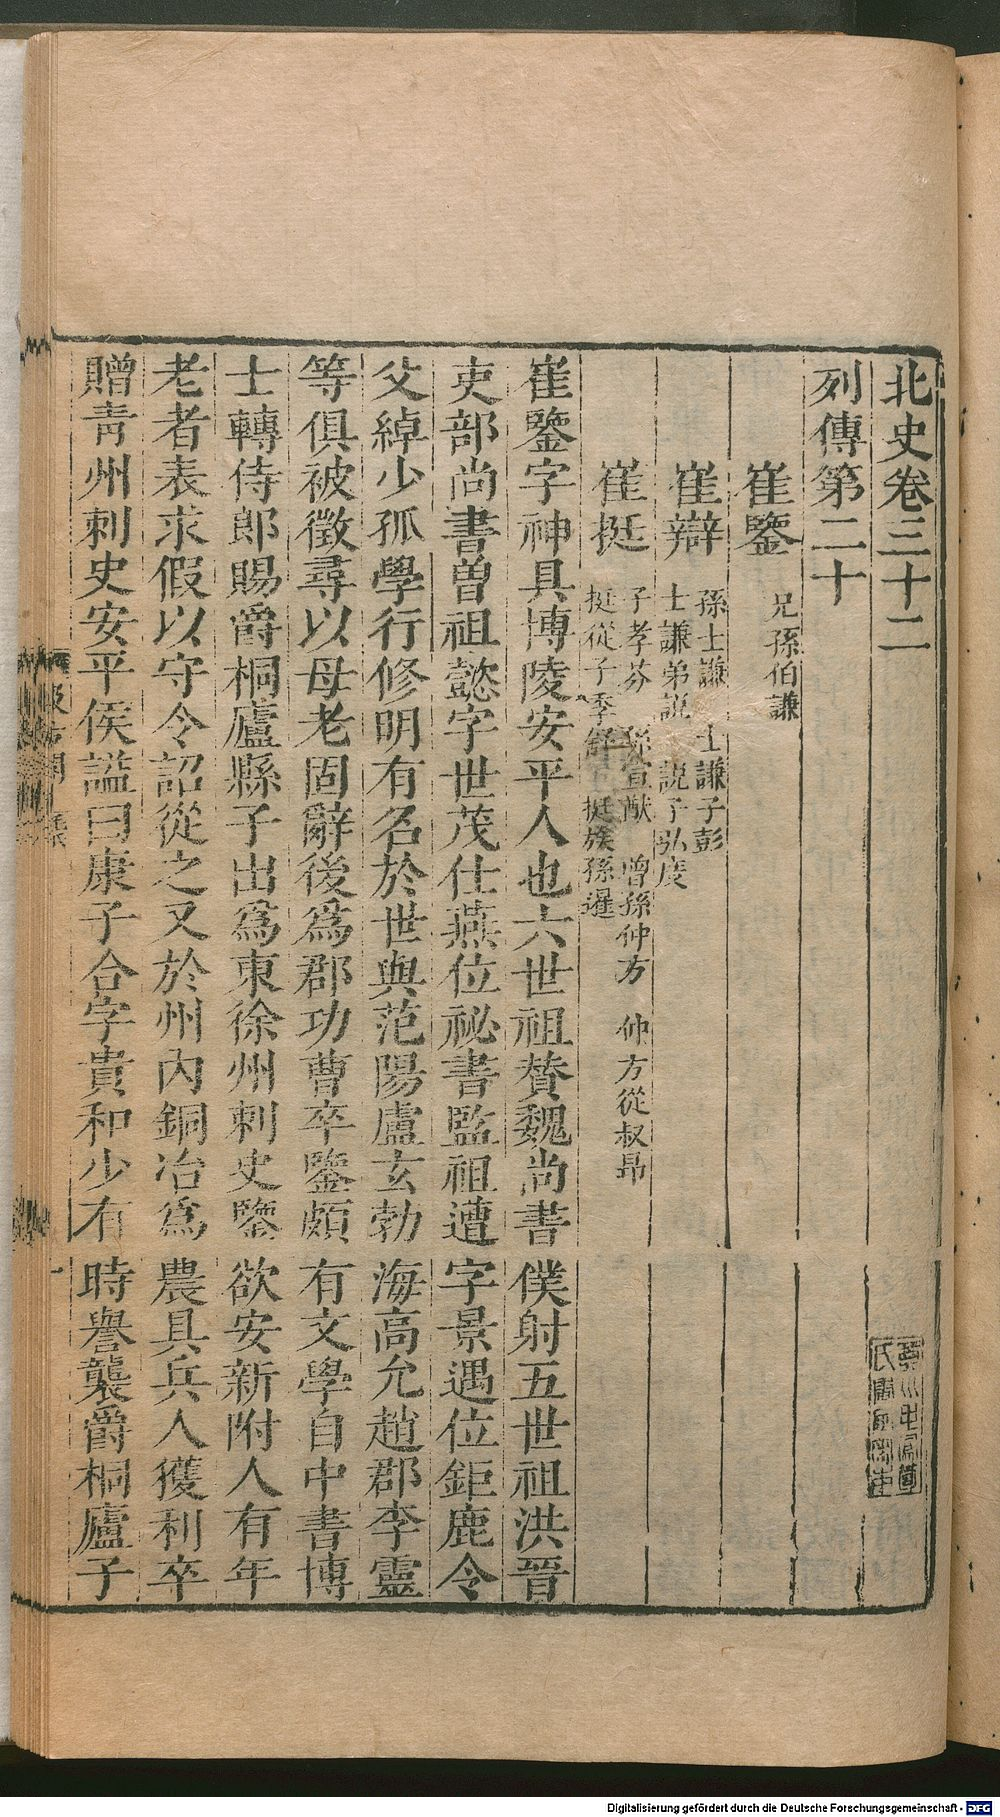 北史卷三十二
列傳第二十
崔鑒 兄孫伯謙
崔辯 孫士謙 士謙子彭
士謙弟説 説子弘度
崔挺 子孝芬 孫宣猷 曾孫仲方 仲方從叔昂
挺從子季舒 挺族孫暹
崔鑒字神具博陵安平人也六世祖贊魏尚書僕射五世祖洪晉
吏部尚書曽祖懿字世茂仕燕位祕書監祖遭字景遇位鉅鹿令
父綽少孤學行修明有名於世與范陽盧玄勃海高允趙郡李靈
等俱被徵尋以母老固辭後爲郡功曹卒鑒頗有文學自中書博
士轉侍郎賜爵桐廬縣子出爲東徐州刺史鑒欲安新附人有年
老者表求假以守令詔從之又於州内銅冶爲農具兵人獲利卒
贈靑州刺史安平侯謚曰康子合字貴和少有時譽襲爵桐廬子
一
Digitalisierung gefördert durch die Deutsche Forschungsgemeinschaft - DFG